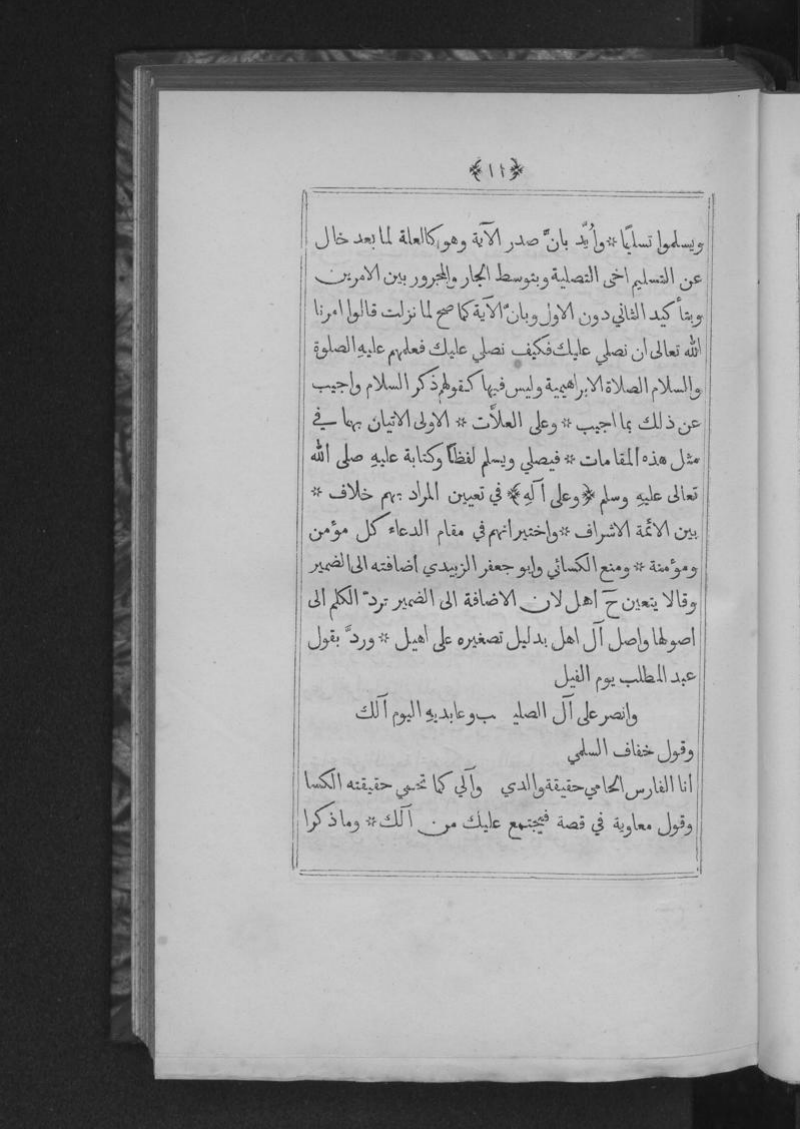 ﴿١٢﴾
ويسلموا تسليمًا * وأُيّد بانَّ صدر الآية وهو كالعلة لما بعد خال
عن التسليم اخى التصلية وبتوسط الجار والمجرور بين الامرين
وبتأكيد الثاني دون الاول وبانّ الآية كما صح لما نزلت قالوا امرنا
الله تعالى ان نصلي عليك فكيف نصلي عليك فعلمهم عليهِ الصلوة
والسلام الصلاة الابراهيمية وليس فيها كقولهم ذكر السلام واجيب
عن ذلك بما اجيب * وعلى العلاَّت * الاولى الاتيان بهما في
مثل هذه المقامات * فيصلي ويسلم لفظًا وكتابة عليهِ صلى الله
تعالى عليهِ وسلم ﴿وعلى آلهِ﴾ في تعيين المراد بهم خلاف *
بين الائمة الاشراف * واختير انهم في مقام الدعاء كل مؤمن
ومؤمنة * ومنع الكسائي وابو جعفر الزبيدي اضافته الى الضمير
وقالا يتعين حَ اهل لان الاضافة الى الضمير تردّ الكلم الى
اصولها واصل آل اهل بدليل تصغيره على اهيل * وردَّ بقول
عبد المطلب يوم الفيل
وانصر على آل الصليـ ـب وعابديهِ اليوم آلك
وقول خفاف السلمي
أنا الفارس الحامي حقيقة والدي وآلي كما تحمي حقيقته الكسا
وقول معاوية في قصة فيجتمع عليك من آلك * وما ذكرا